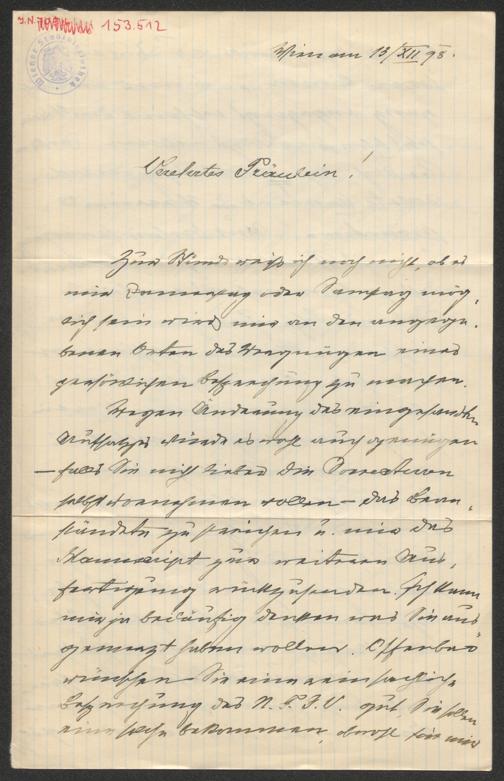 J.N. 153.512
Wiener Stadtbibliothek
Wien am 13/XII 98.
Verehrtes Fräulein!
Zur Stunde weiß ich noch nicht, ob es
mir Donnerstag oder Samstag mög-
lich sein wird mir an den angege-
benen Orten das Vergnügen einer
persönlichen Besprechung zu machen.
Wegen Änderung des eingesandten
Aufsatzes würde es wohl auch genügen
– falls Sie nicht lieber die Correcturen
selbst vornehmen wollen – das Bean-
ständete zu streichen u. mir das
Manuscript zur weiteren Aus-
fertigung rückzusenden. Ich kann
mir ja beiläufig denken was Sie aus-
gemerzt haben wollen. Offenbar
wünschen Sie eine rein sachliche
Besprechung des N. F. V. gut, Sie sollen
eine solche bekommen, obwohl für mich